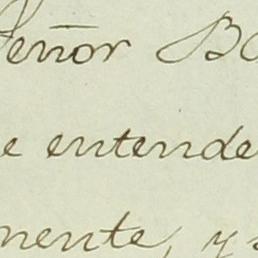 Señor B
e entende
mente, y